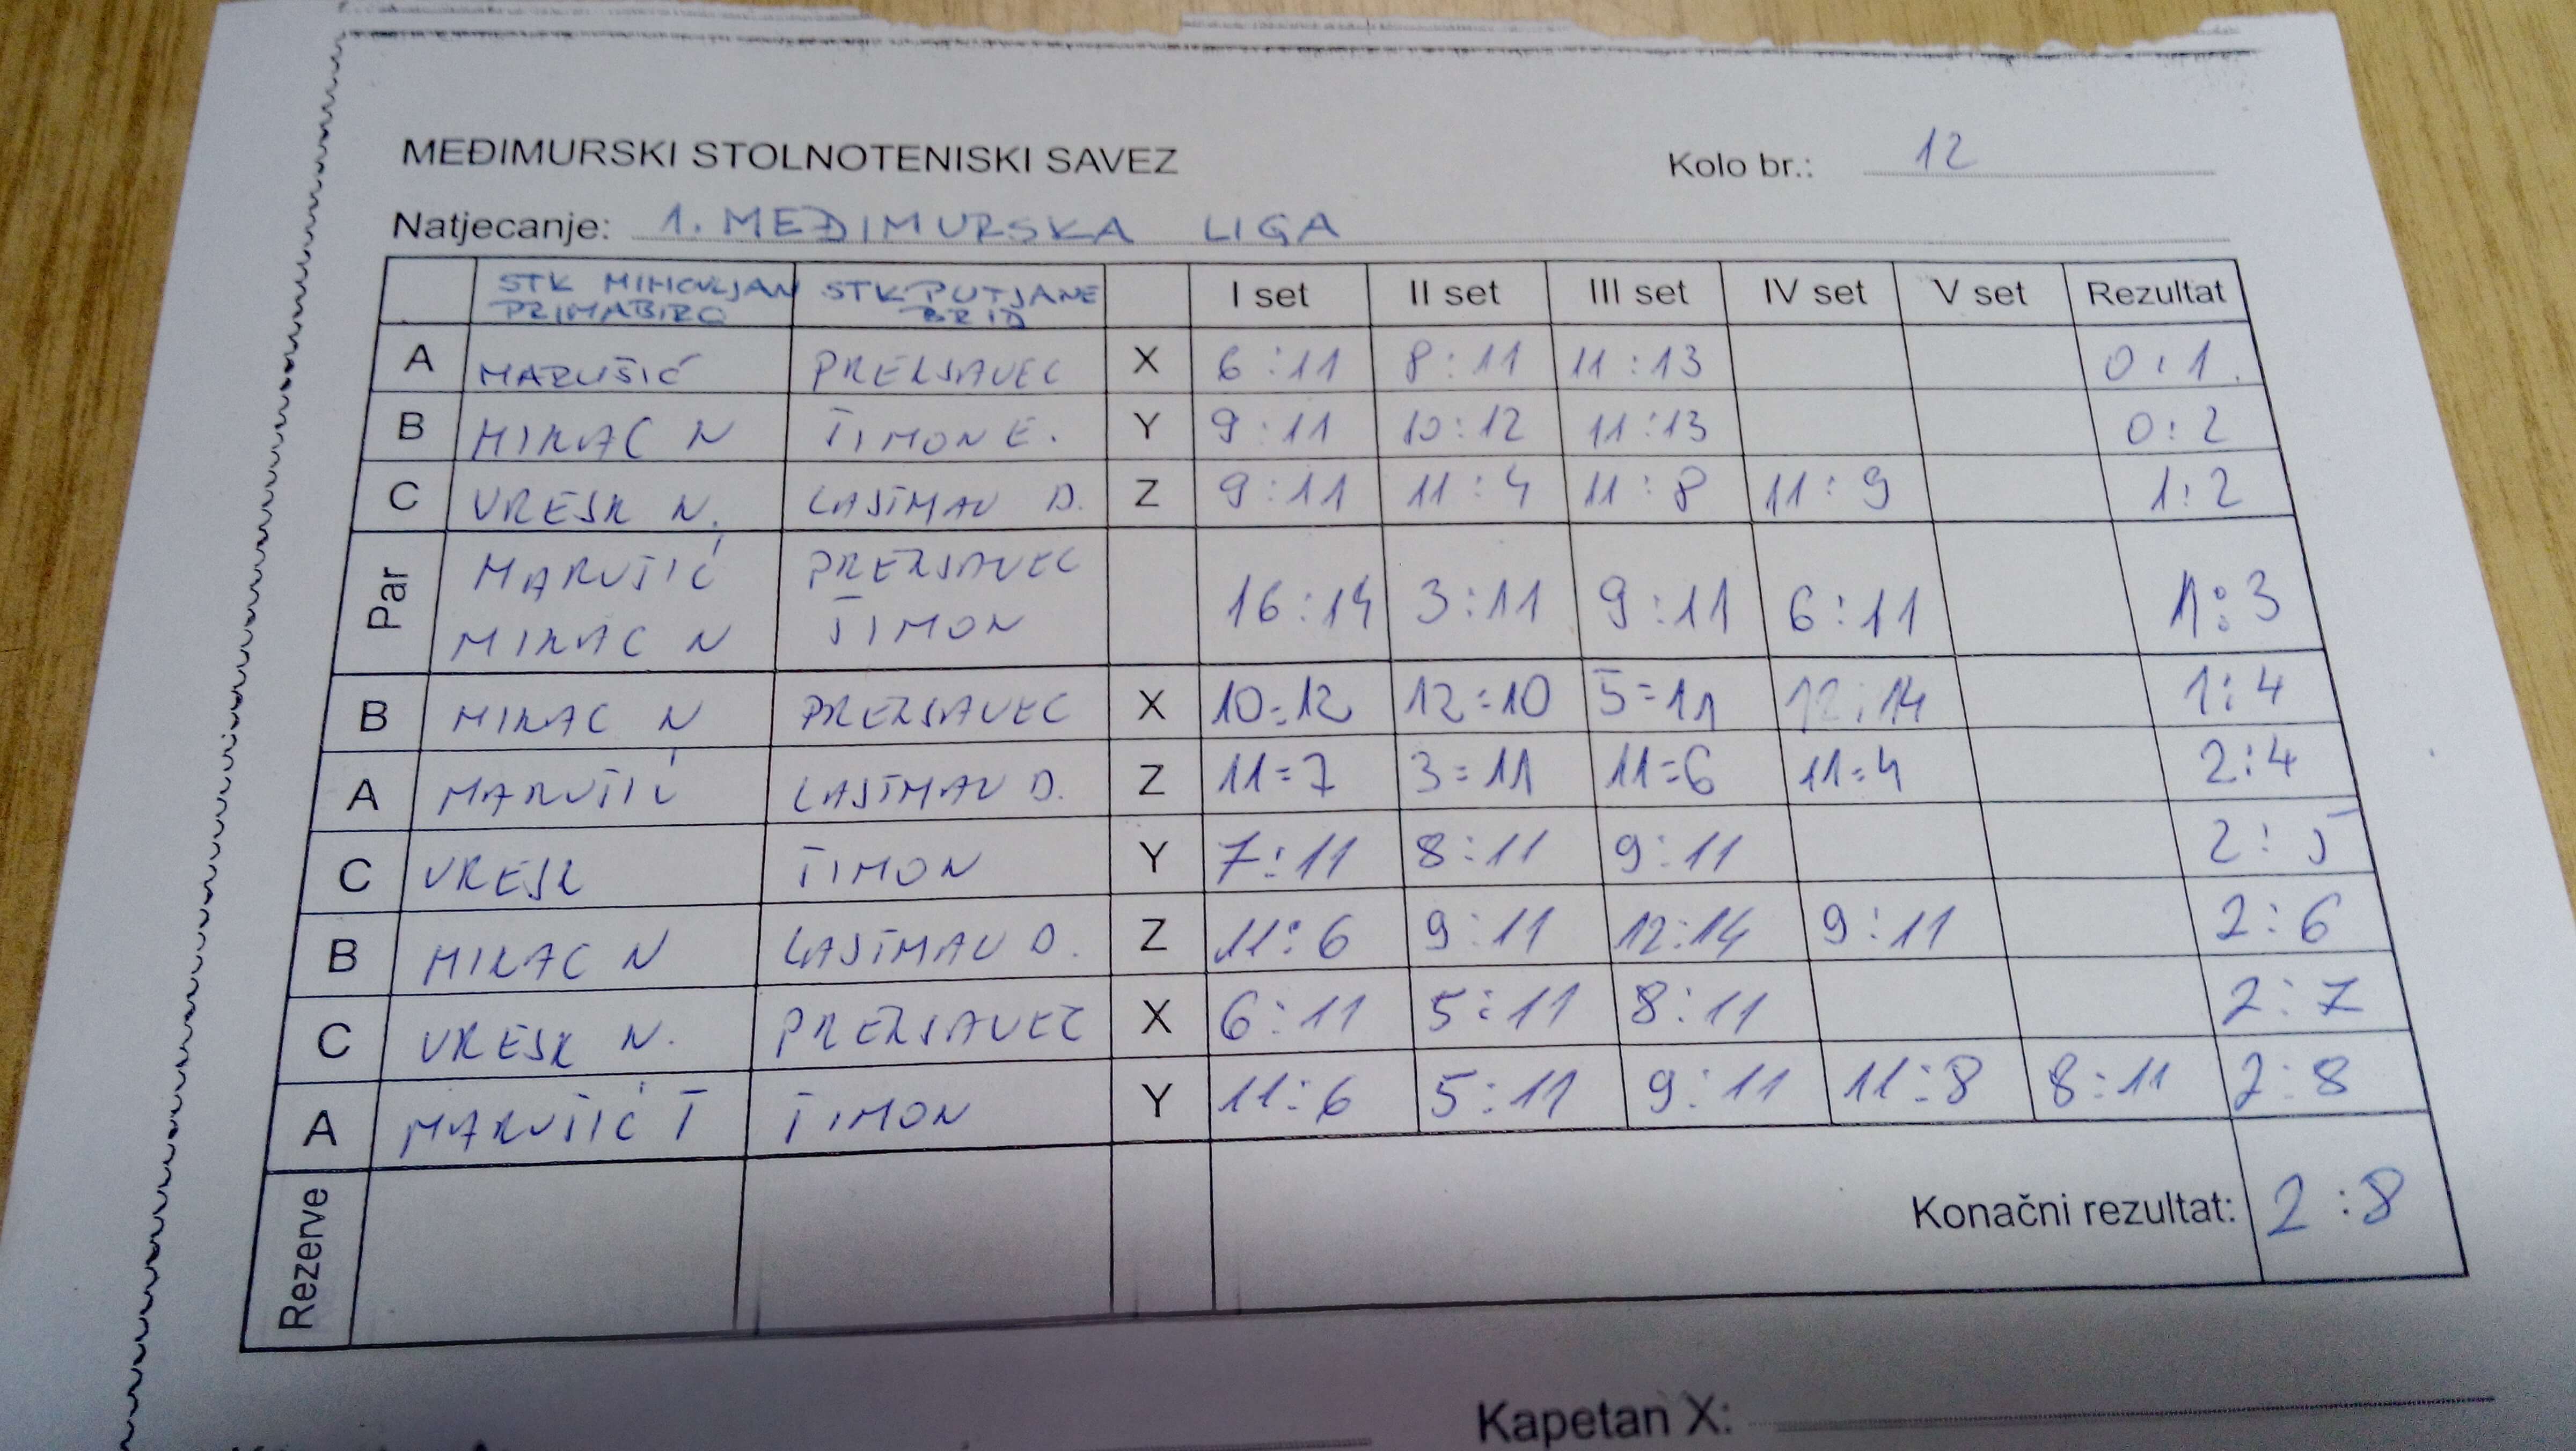 MEĐIMURSKI STOLNOTENISKI SAVEZ Kolo br.: 12
Natjecanje: 1. MEĐIMURSKA LIGA
STK MIHOVLJAN PRIMABIRO STK PUTJANE BRID I set II set III set IV set V set Rezultat
A MARUŠIĆ PREKSAVEC X 6:11 8:11 11:13 0:1
B MIKAC N TIMON E. Y 9:11 10:12 11:13 0:2
C VRESK N. LASTMAN D. Z 9:11 11:4 11:8 11:9 1:2
Par MARUŠIĆ MIKAC N PREKSAVEC TIMON 16:14 3:11 9:11 6:11 1:3
B MIKAC N PREKSAVEC X 10:12 12:10 5=11 12:14 1:4
A MARUŠIĆ LASTMAN D. Z 11=7 3=11 11=6 11=4 2:4
C VRESK TIMON Y 7:11 8:11 9:11 2:5
B MIKAC N LASTMAN D. Z 11:6 9:11 12:14 9:11 2:6
C VRESK N. PREKSAVEC X 6:11 5:11 8:11 2:7
A MARUŠIĆ T TIMON Y 11:6 5:11 9:11 11:8 8:11 2:8
Rezerve Konačni rezultat: 2:8
Kapetan X: